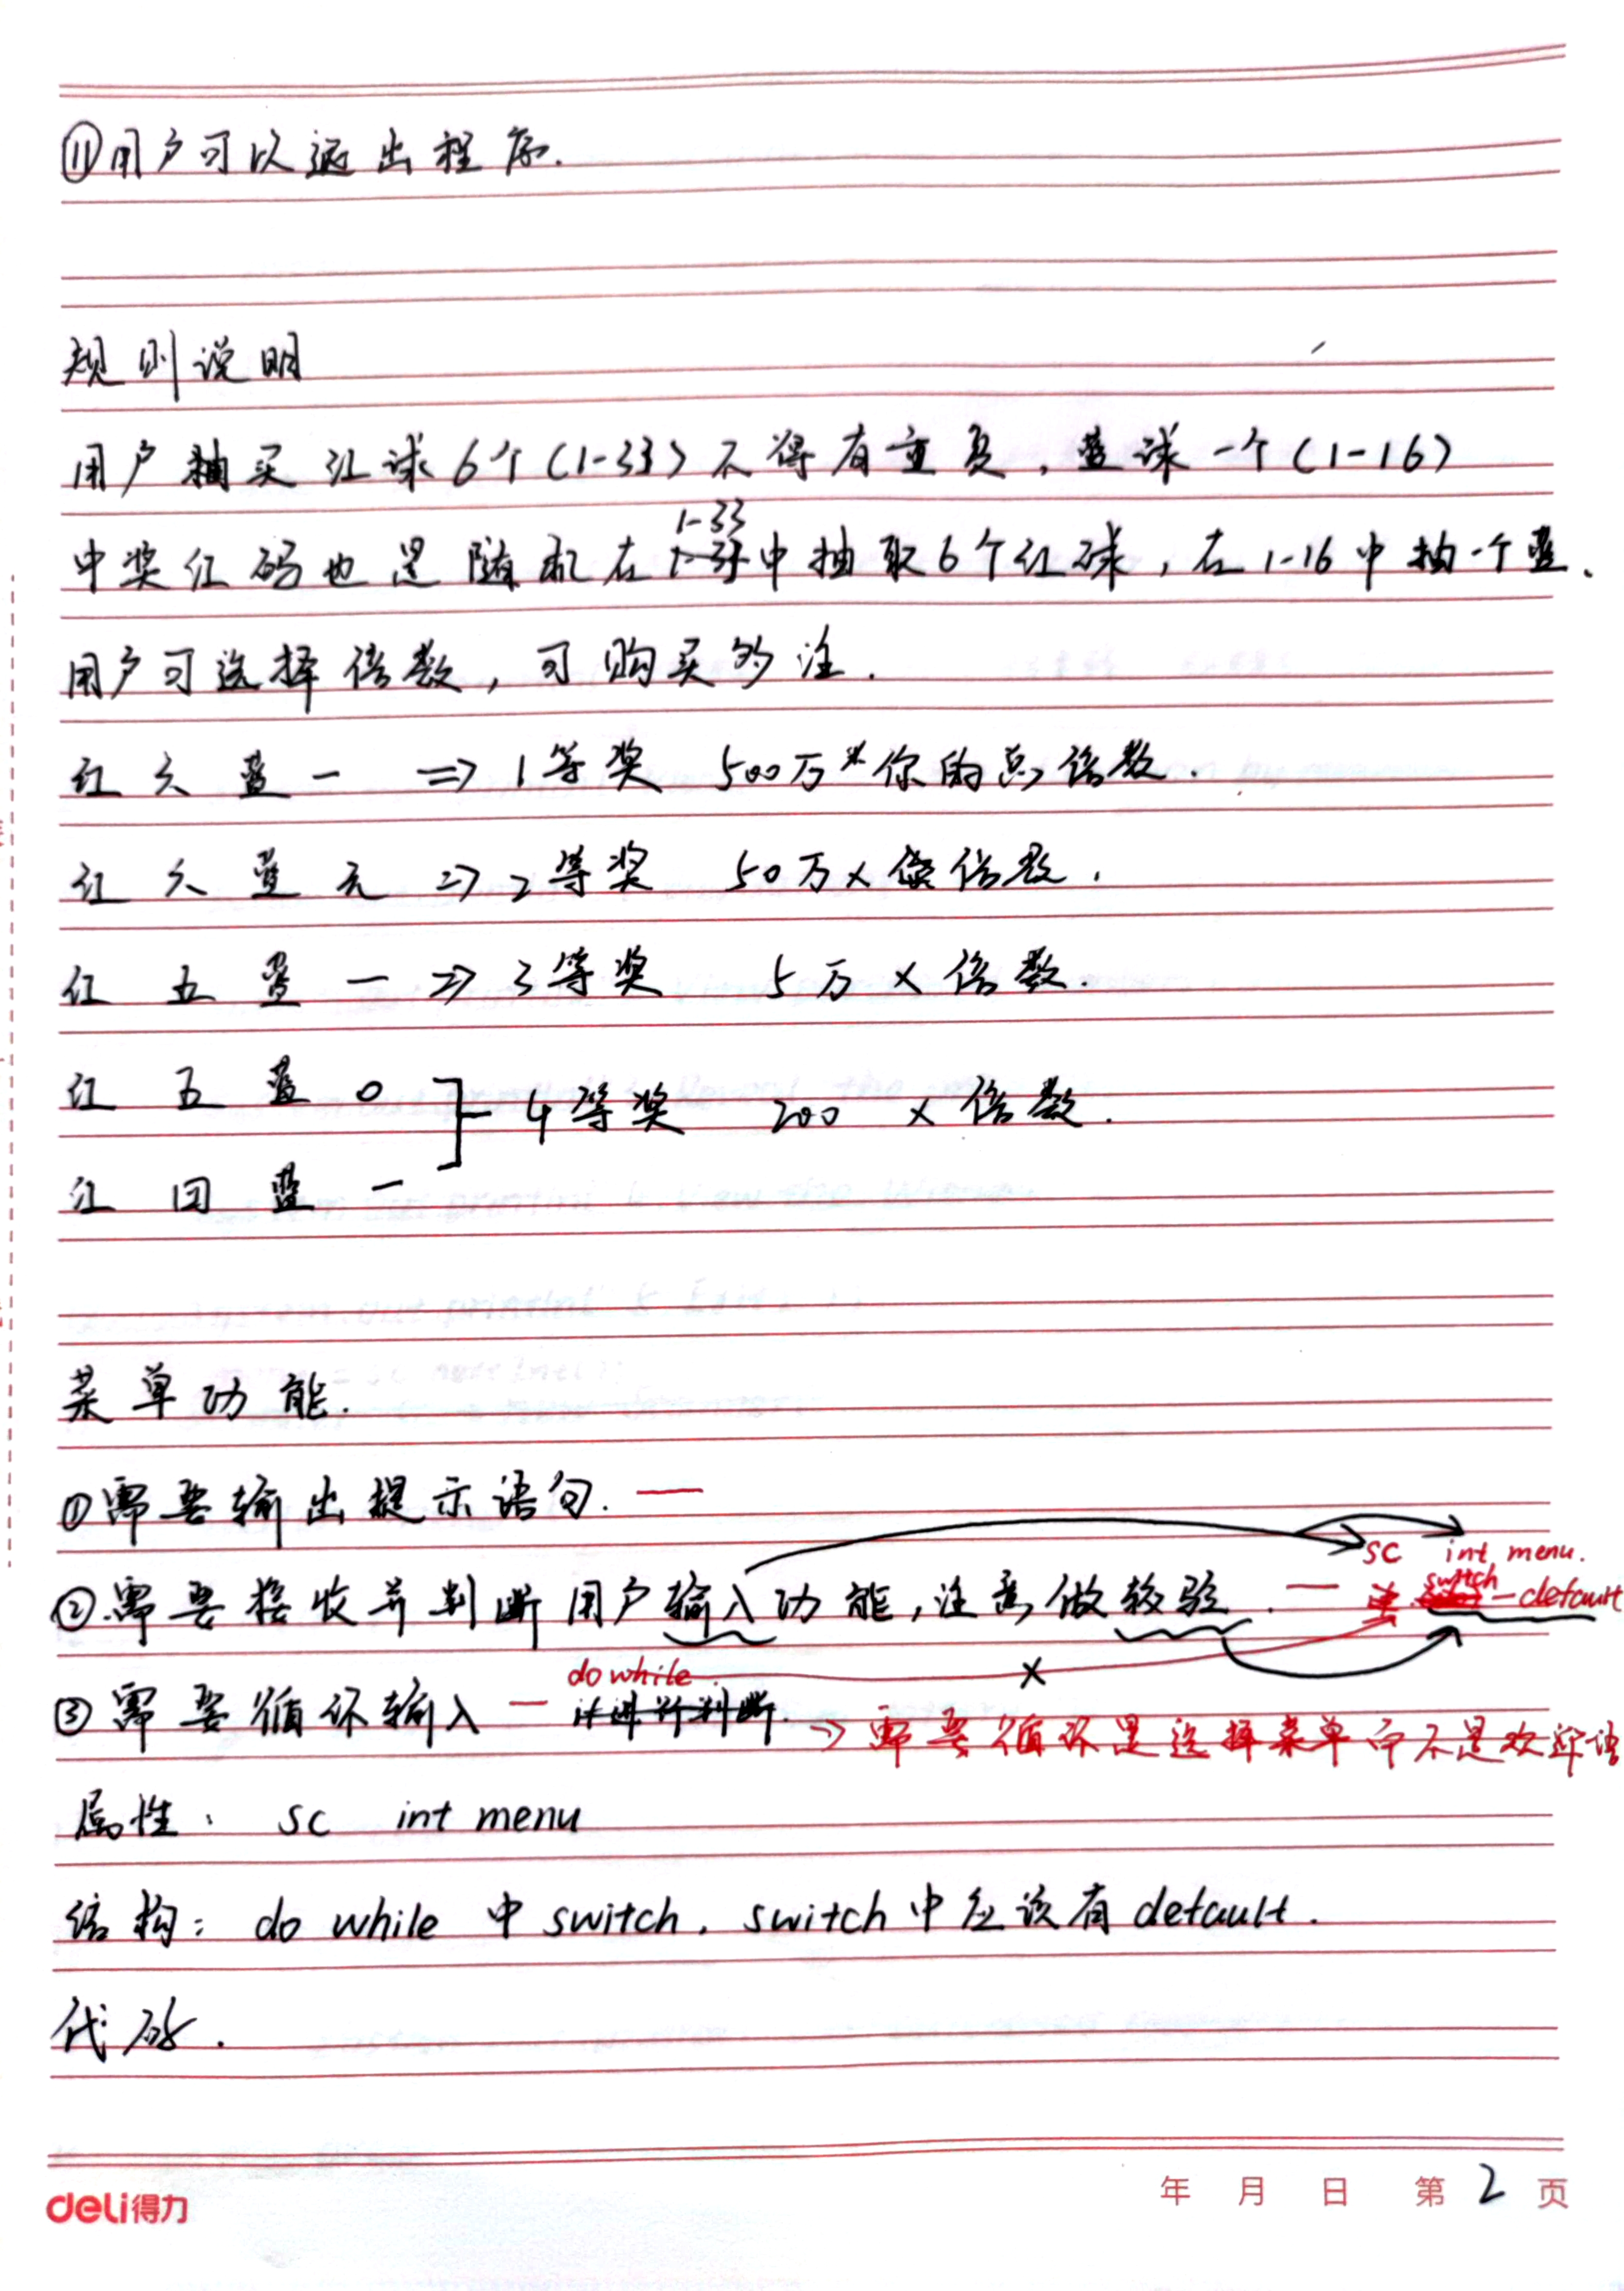 ⑪用户可以退出程序.
规则说明
用户抽买红球6个(1-33)不得有重复,蓝球一个(1-16)
1-33
中奖红码也是随机在中抽取6个红球,在1-16中抽一个蓝.
用户可选择倍数,可购买多注.
红六蓝一 => 1等奖 500万*你的总倍数.
红六蓝元 => 2等奖 50万×倍数.
红五蓝一 => 3等奖 5万×倍数.
红五蓝0
4等奖 200 ×倍数.
红四蓝一
菜单功能.
①需要输出提示语句. —
sc int menu.
②需要接收并判断用户输入功能,注意做较验. — switch — default
do while
③需要循环输入 — 并进行判断 → 需要循环是选择菜单而不是欢迎语
属性: sc int menu
结构: do while 中 switch. switch中应该有default.
代码.
deli得力
年 月 日 第2页